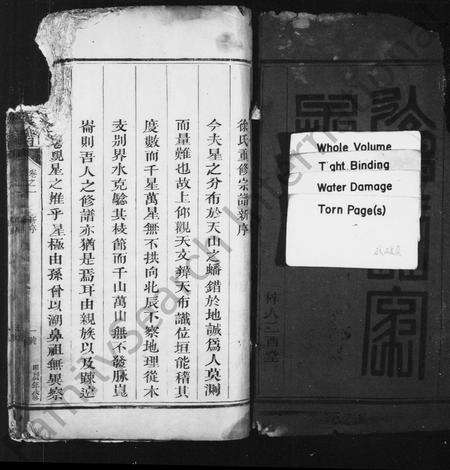 徐氏重修宗譜新序
今夫星之分布於天山之蟠錯於地誠爲人莫測
而量難也故上仰觀天文辨天布識位垣能稽其
度數而千星萬星無不拱向北辰不察地理從木
支別界水克驗其枝節而千山萬山無不發脉崑
崙則吾人之修譜亦猶是焉耳由親族以及疎遠
觀星之推乎星極由孫曾以溯鼻祖無異察
卷之一
新序
一
Whole Volume
Tight Binding
Water Damage
Torn Page(s)
FamilySearch International